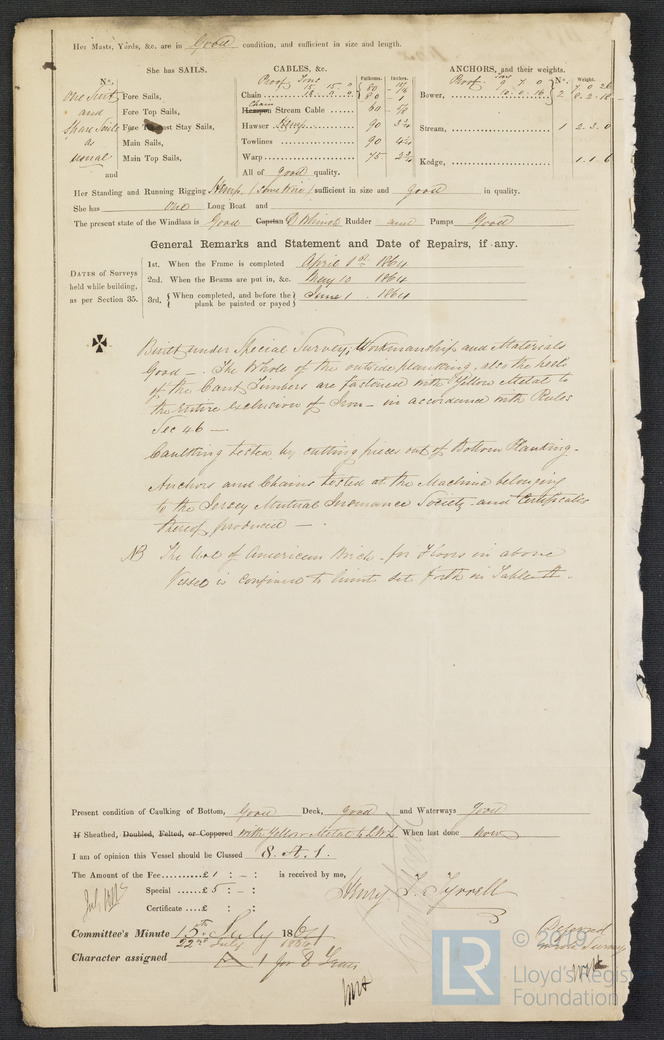 Her Masts, Yards, &c. are in Good condition, and sufficient in size and length.
She has SAILS.
CABLES, &c.
ANCHORS, and their weights.
Nº.
Fathoms.
Inches.
Nº.
Weight.
Proof Tons
Proof Tons
One Suit
Fore Sails,
Chain
Bower,
2
and
Fore Top Sails,
Chain
Hempen Stream Cable
60
Spare Sails
Fore Topmast Stay Sails,
Hawser Hemp
90
Stream,
1 2.3.0
as
Main Sails,
Towlines
90
usual
Main Top Sails,
Warp
75
Kedge,
1.1.6
and
All of good quality.
Her Standing and Running Rigging Hemp sufficient in size and good in quality.
She has one Long Boat and
The present state of the Windlass is Good Capstan Rudder and Pumps Good
General Remarks and Statement and Date of Repairs, if any.
DATES of Surveys held while building, as per Section 35.
1st. When the Frame is completed April 1st 1864
2nd. When the Beams are put in, &c. May 10 1864
3rd. { When completed, and before the plank be painted or payed } June 1 . 1864
Built under Special Survey, Workmanship and Materials
Good – . The Whole of the outside planking, also the heels
of the Cant Timbers are fastened with Yellow Metal to
the entire exclusion of Iron – in accordance with Rules
Sec 46 –
Caulking tested by cutting pieces out of Bottom Planking.
Anchors and Chains tested at the Machine belonging
to the Jersey Mutual Insurance Society and Certificates
thereof produced –
NB The Use of American Birch for Floors in above
Vessel is confined to limit set forth in Table A.
Present condition of Caulking of Bottom, Good Deck, good and Waterways Good
If Sheathed, Doubled, Felted, or Coppered with Yellow Metal to LWL When last done now
I am of opinion this Vessel should be Classed 8. A. 1.
The Amount of the Fee......£ 1 : – : is received by me,
Special ......£ 5 : – :
Certificate ...£ : :
Henry T. Tyrrell
Committee's Minute 15th July 1864
22nd July 1864
Character assigned A 1 for 8 Years
© 2019
LR
Lloyd's Regis
Foundation